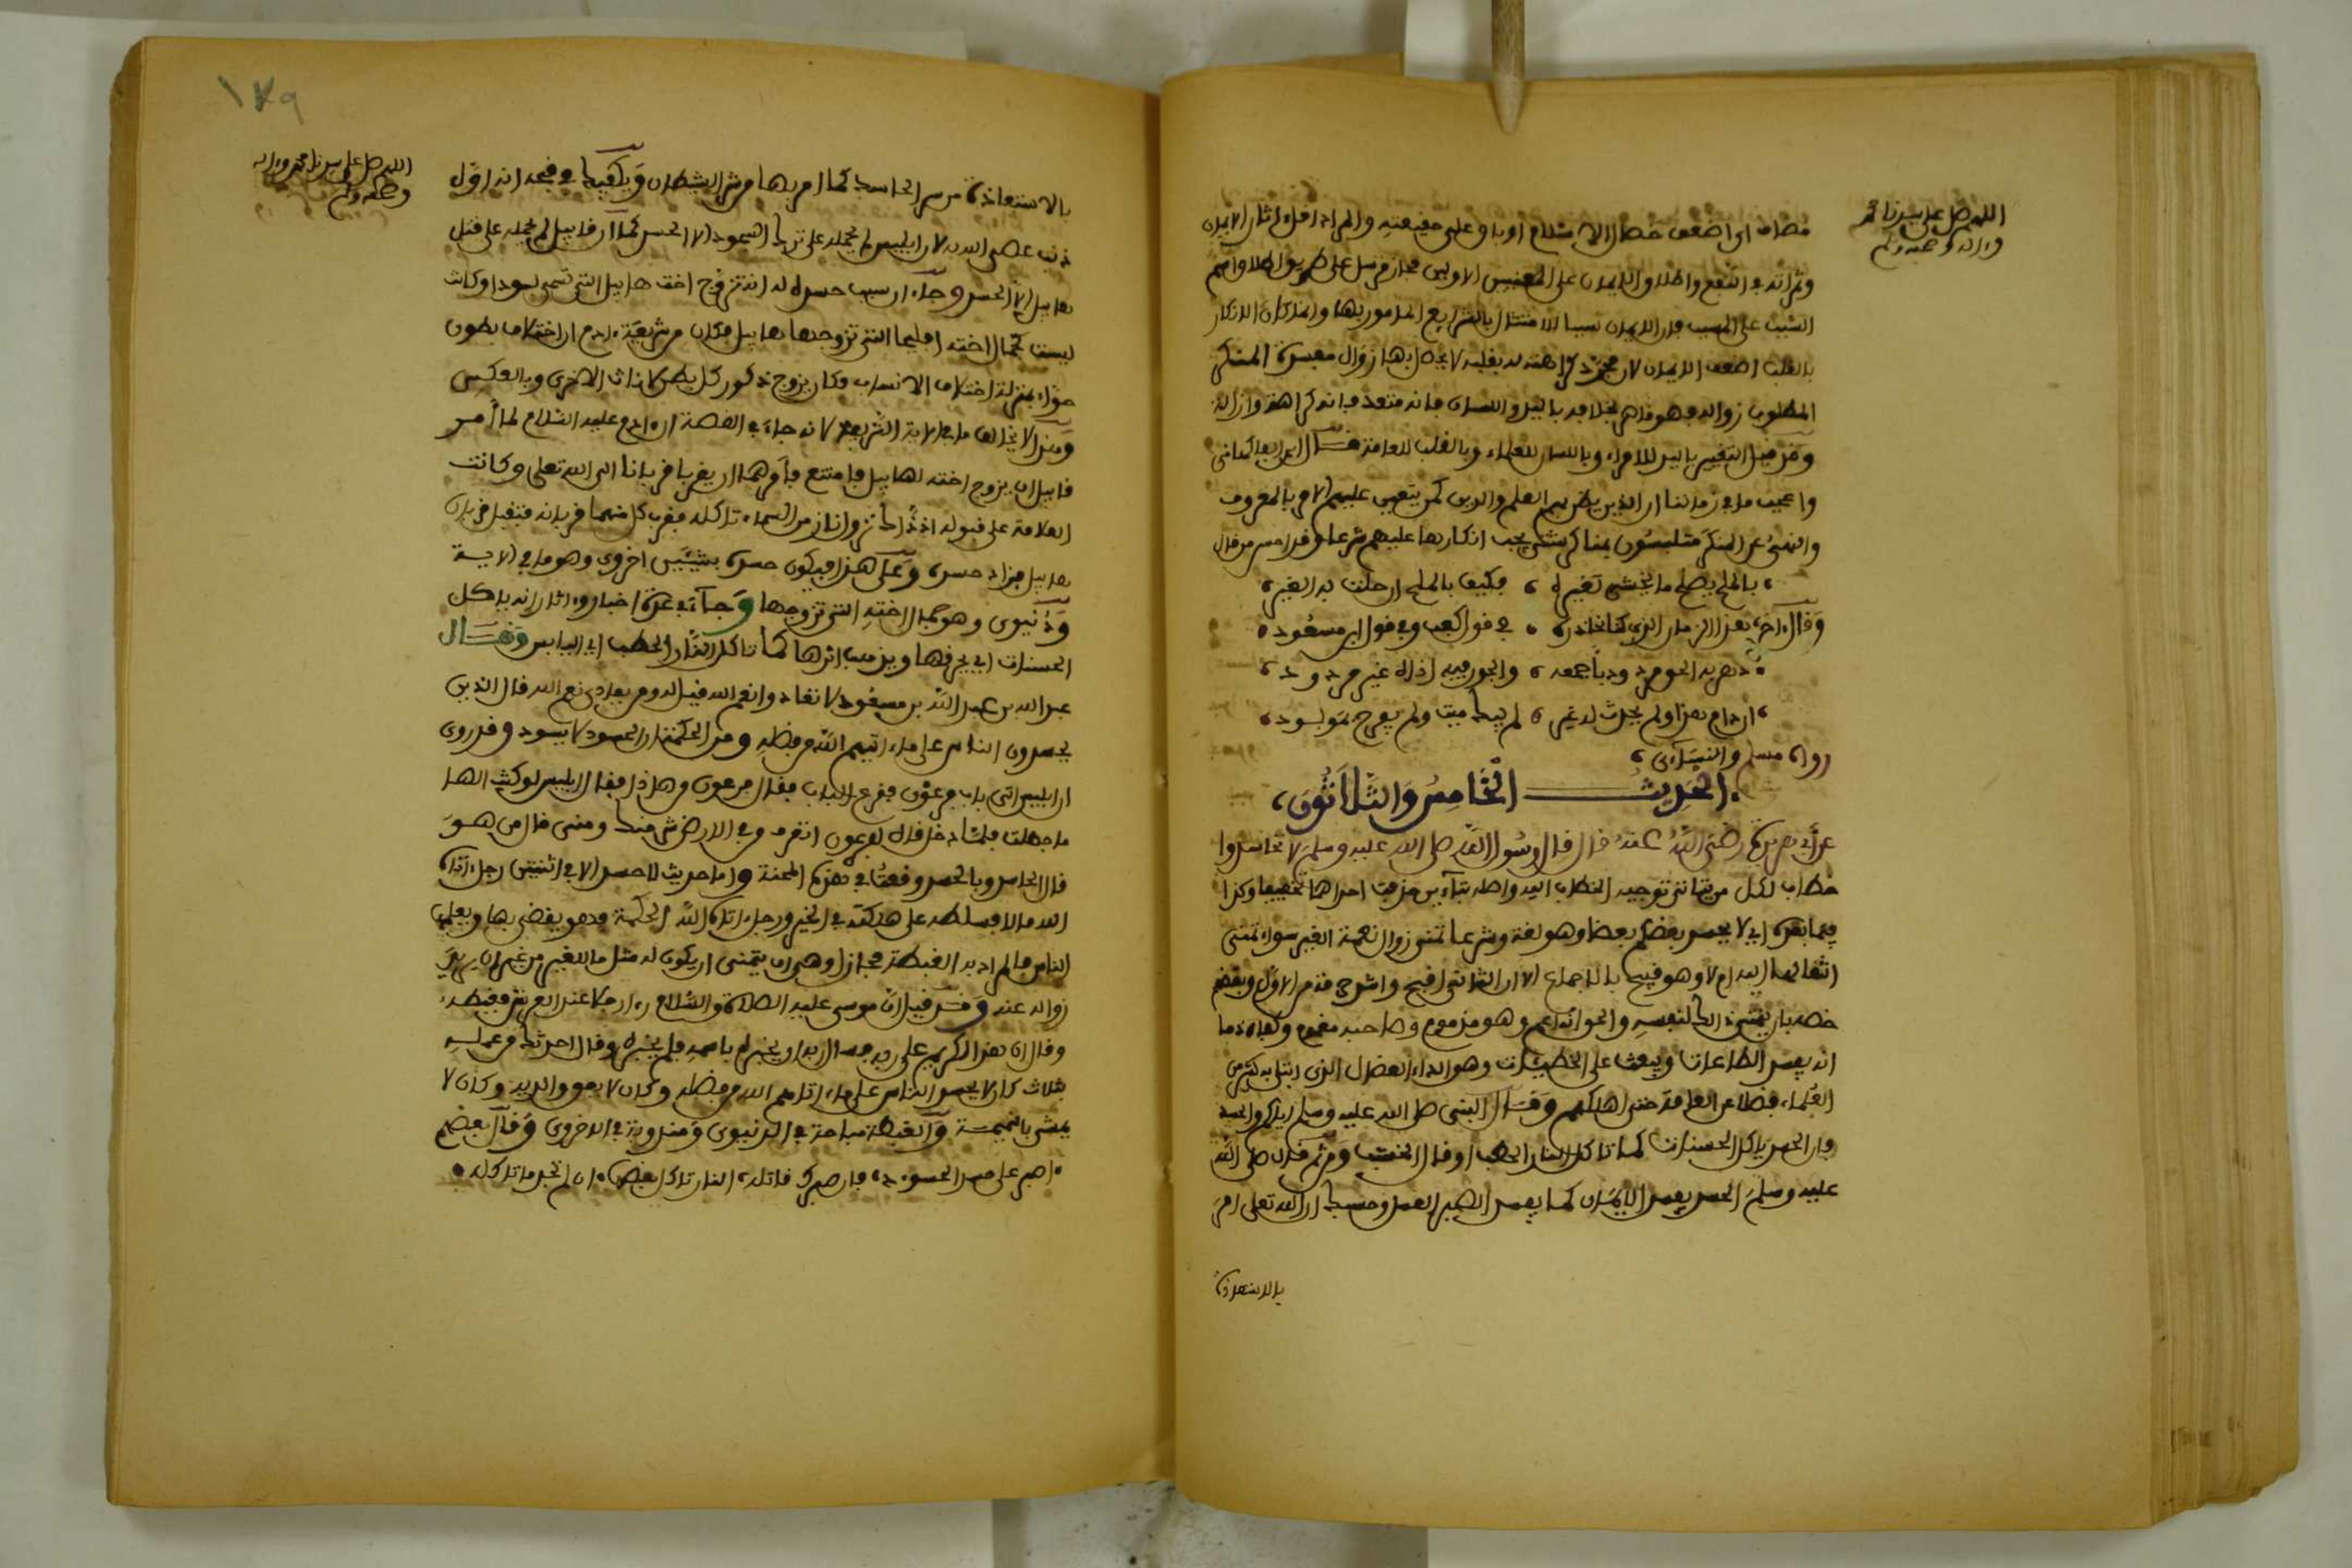 اللهم صل على سيدنا محمد
وءاله وصحبه وسلم
مضاف اي اضعف خصال الاسلام او باق على حقيقته والمراد اقل ءاثار الايمان
وثمراته في النفع واطلاق الايمان على المعنيين الاولين مجاز مرسل على طريق اطلاق اسم
السبب على المسبب فان الايمان سببا للامتثال بالشرايع المامور بها وانما كان الانكار
بالقلب اضعف الايمان لان مجرد كراهته له بقلبه لا يحصل بها زوال مفسدة المنكر
المطلوب زواله فهو قاصر بخلافه باليد واللسان فانه متعد فانه كراهة وازالة
ومن قبيل التغيير باليد للامراء وباللسان للعلماء وبالقلب للعامة قال ابن
واعجب ما في زماننا ان الذين يظن بهم العلم والدين كمن يتعين عليهم الامر بالمعروف
والنهي عن المنكر متلبسون بمناكر شتى يجب انكارها عليهم شرعا وقد احسن من قال
بالملح يصلح ما يخشى تغيره ، فكيف بالملح ان حلت به الغير
وقال ءاخر هذا الزمان الذي كنا نحاذره ، في قول كعب وفي قول ابن مسعود
دهر به الحق مردود باجمعه ، والجور فيه اذاه غير مردود
ان دام هذا ولم يحدث له غير ، لم يبك ميت ولم يفرح بمولود
رواه مسلم والنسائي
الحديث الخامس والثلاثون
عن ابي هريرة رضي الله عنه قال قال رسول الله صلى الله عليه وسلم لا تحاسدوا
خطاب لكل من يتاتى توجيه الخطاب اليه واصله بتاءين حذفت احداهما تخفيفا وكذا
فيما بعده اي لا يحسد بعضكم بعضا وهو لغة وشرعا تمني زوال نعمة الغير سواء تمنى
انتقالها اليه ام لا وهو قبيح بالاجماع الا ان الثاني اقبح واشر من الاول وبعضهم
خصه بان يتمنى ذلك لنفسه والحق انه اعم وهو مذموم وصاحبه مغموم وكفاه ذما
انه يفسد الطاعات ويبعث على الخطيئات وهو الداء العضال الذي ابتلي به كثير من
العلماء فضلا عن العامة حتى اهلكهم وقال النبي صلى الله عليه وسلم اياكم والحسد
فان الحسد ياكل الحسنات كما تاكل النار الحطب او قال الخشب ومن ثم قال صلى الله
عليه وسلم الحسد يفسد الايمان كما يفسد الصبر العسل وحسبك ان الله تعلى امر
بالاستعاذة
١٧٩
اللهم صل على سيدنا محمد وءاله
وصحبه وسلم
بالاستعاذة من شر الحاسد كما امر بها من شر الشيطان ويكفيك في قبحه انه اول
ذنب عصي الله به لان ابليس لم يحمله على ترك السجود الا الحسد كما ان قابيل لم يحمله على قتل
هابيل الا الحسد وجاء ان سبب حسده له انه تزوج اخت هابيل التي تسمى لبودا وكانت
ليست كجمال اخته اقليما التي تزوجها هابيل فكان من شريعة ءادم ان اختلاف بطون
حواء بمنزلة اختلاف الانساب فكان يزوج ذكور كل بطن لاناث الاخرى وبالعكس
وهذا لا يخالف ما في الاية الشريفة لانه جاء في القصة ان ءادم عليه السلام لما امر
قابيل ان يزوج اخته لهابيل فامتنع فامرهما ان يقربا قربانا الى الله تعلى وكانت
العلامة على قبوله اذ ذاك نزول نار من السماء تاكله فقرب كل منهما قربانه فتقبل قربان
هابيل فزاد حسده وعلى هذا فيكون حسده بشيئين اخروي وهو ما في الاية
ودنيوي وهو جمال اخته التي تزوجها وجاء في عدة اخبار وءاثار انه ياكل
الحسنات اي يحرقها ويذهب اثرها كما تاكل النار الحطب اي اليابس وقال
عبد الله بن مسعود لا تعادوا نعم الله قيل له ومن يعادي نعم الله قال الذين
يحسدون الناس على ما ءاتيهم الله من فضله ومن الحكمة ان الحسود لا يسود وقد روي
ان ابليس اتى باب فرعون فقرع الباب فقال فرعون من هذا فقال ابليس لو كنت الها
ما جهلت فلما دخل قال له فرعون اتعرف في الارض شر منك ومني قال من هو
قال الحاسد وبالحسد وقعت في هذه المحنة واما حديث لا حسد الا في اثنين رجل ءاتاه
الله مالا فسلطه على هلكته في الخير ورجل ءاتاه الله الحكمة فهو يقضي بها ويعلمها
الناس فالمراد به الغبطة مجازا وهي ان يتمنى ان يكون له مثل ما للغير من غير ان يريد
زواله عنه وقد قيل ان موسى عليه الصلاة والسلام راى رجلا عند العرش فغبطه
وقال ان هذا لكريم على ربه فسال ربه ان يخبره باسمه فلم يخبره وقال احدثك من عمله
بثلاث كان لا يحسد الناس على ما ءاتاهم الله من فضله وكان لا يعق والديه وكان لا
يمشي بالنميمة والغبطة مباحة في الدنيوي ومندوبة في الاخروي وقال بعضهم
اصبر على حسد الحسود ، فان صبرك قاتله ، النار تاكل بعضها ، ان لم تجد ما تاكله